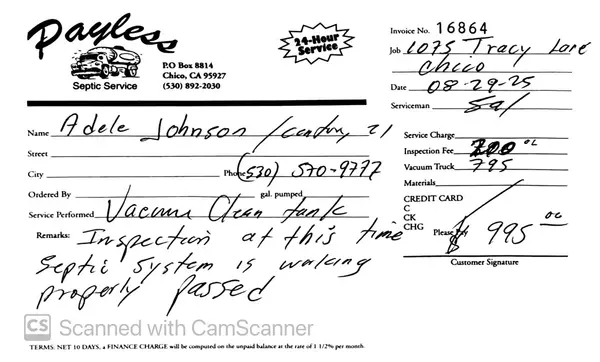 Payless
Septic Service
P.O Box 8814
Chico, CA 95927
(530) 892-2030
24-Hour
Service
Invoice No. 16864
Job 1075 Tracy Lane
Chico
Date 08-29-25
Serviceman Sal
Name Adele Johnson / Century 21
Street
City Phone (530) 570-9777
Ordered By gal. pumped
Service Performed Vacuum Clean tank
Remarks: Inspection at this time
Septic System is working
properly passed
Service Charge
Inspection Fee 200 00
Vacuum Truck 795
Materials
CREDIT CARD
C
CK
CHG Please Pay $ 995 00
Customer Signature
CS Scanned with CamScanner
TERMS: NET 10 DAYS, a FINANCE CHARGE will be computed on the unpaid balance at the rate of 1 1/2% per month.